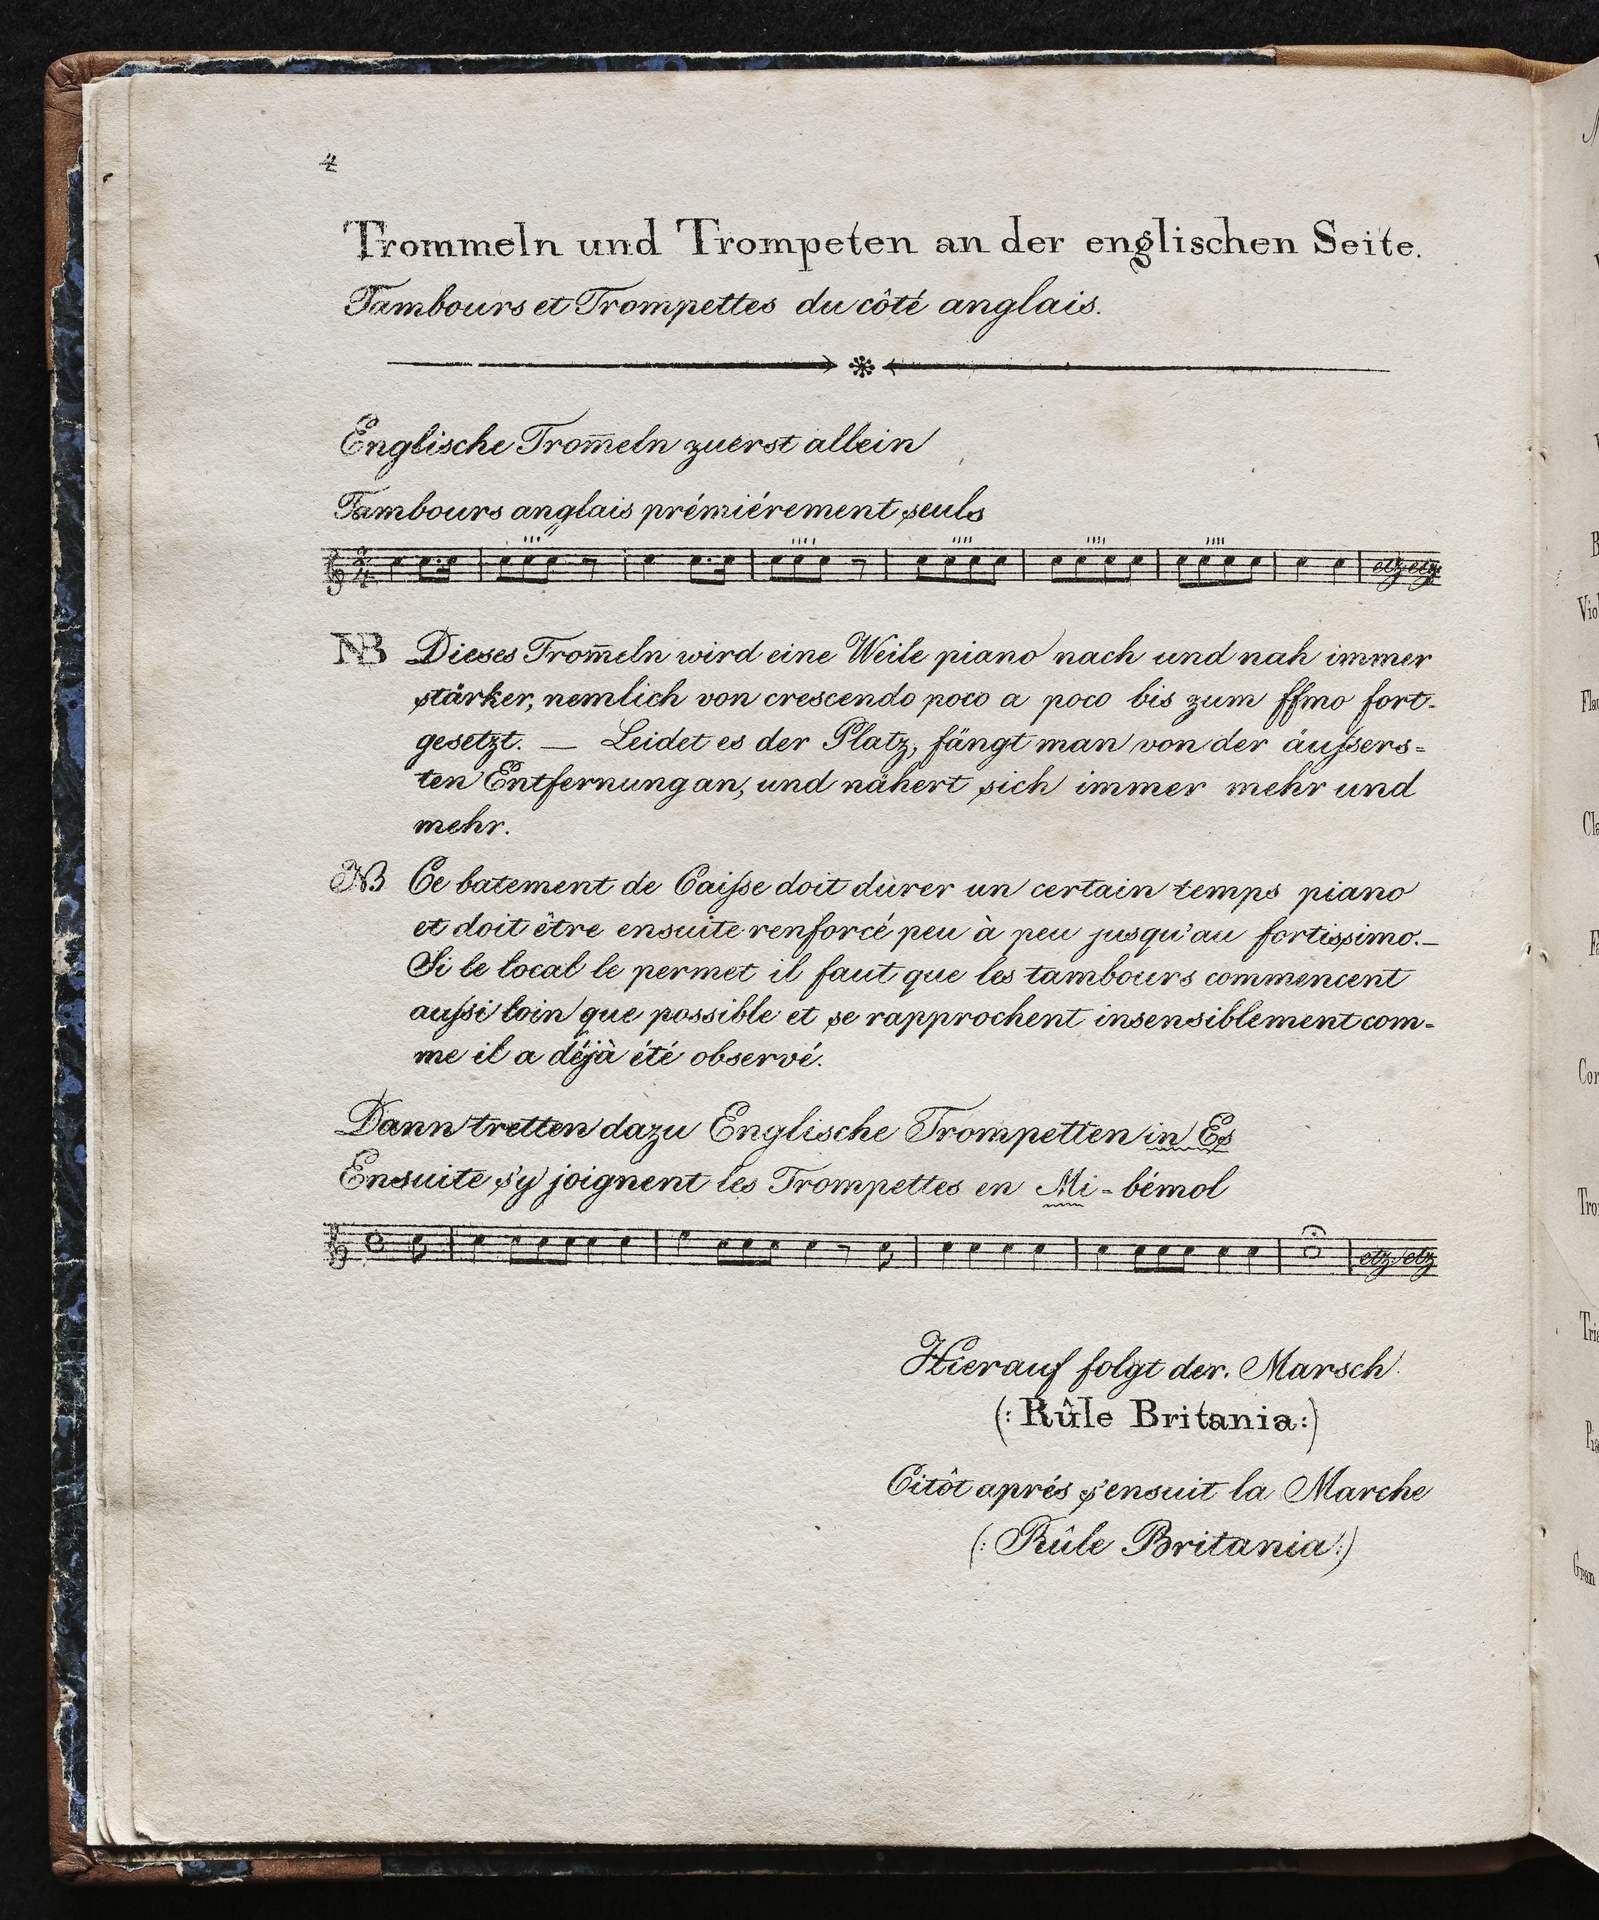 4
Trommeln und Trompeten an der englischen Seite.
Tambours et Trompettes du côté anglais.
Englische Trom̅eln zuerst allein
Tambours anglais prémiérement seuls
etz etz
NB Dieses Trom̅eln wird eine Weile piano nach und nah immer
stärker, nemlich von crescendo poco a poco bis zum ffmo fort-
gesetzt. — Leidet es der Platz, fängt man von der äuſsers=
ten Entfernung an, und nähert sich immer mehr und
mehr.
NB Ce batement de Caiſse doit durer un certain temps piano
et doit être ensuite renforcé peu à peu jusqu'au fortissimo.—
Si le local le permet il faut que les tambours commencent
auſsi loin que possible et se rapprochent insensiblement com-
me il a déjà été observé.
Dann tretten dazu Englische Trompetten in Es
Ensuite s'y joignent les Trompettes en Mi-bémol
etz etz
Hierauf folgt der. Marsch
(: Rûle Britania:)
Citôt aprés s'ensuit la Marche
(: Rûle Britania:)
Vio
Cl
Cor
Tro
Tri
Gran